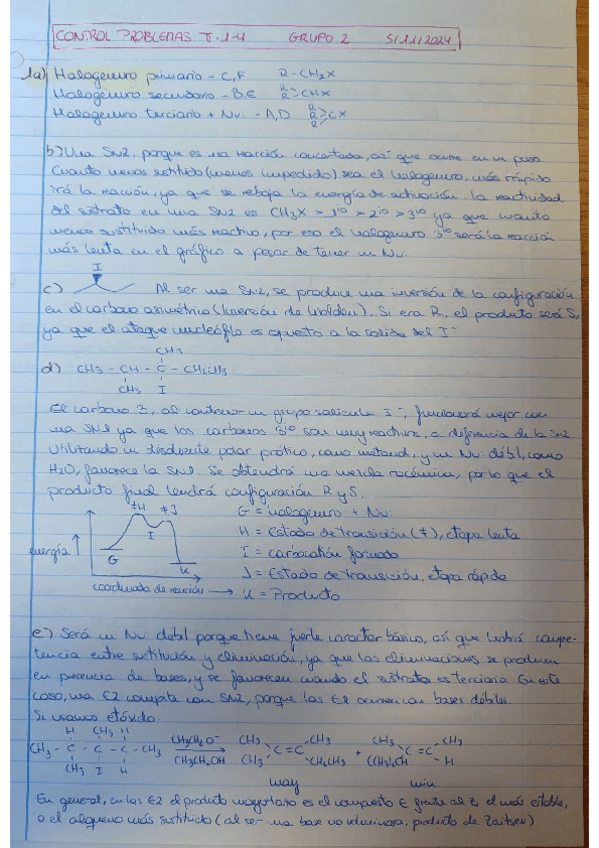 CONTROL PROBLEMAS T.1-4 GRUPO 2 5/11/2024
1a) Halogenuro primario - C,F R-CH2X
Halogenuro secundario - B,E R R > CHX
Halogenuro terciario + Nu: - A,D R R R > CX
b) Una SN2, porque es una reacción concertada, así que ocurre en un paso.
Cuanto menos sustituido (menos impedido) sea el halogenuro, más rápido
irá la reacción, ya que se rebaja la energía de activación. La reactividad
del sustrato en una SN2 es CH3X > 1º > 2º > 3º ya que cuanto
menos sustituido más reactivo, por eso el halogenuro 3º será la reacción
más lenta en el gráfico a pesar de tener un Nu:
I
c) Al ser una SN2, se produce una inversión de la configuración
en el carbono asimétrico (Inversión de Walden). Si era R, el producto será S,
ya que el ataque nucleófilo es opuesto a la salida del I-
CH3
d) CH3 - CH - C - CH2CH3
CH3 I
El carbono 3, al contener un grupo saliente I-, funcionará mejor con
una SN1 ya que los carbonos 3º son muy reactivos, a diferencia de la SN2
Utilizando un disolvente polar prótico, como metanol, y un Nu: débil, como
H2O, favorece la SN1. Se obtendrá una mezcla racémica, por lo que el
producto final tendrá configuración R y S.
≠H ≠J G = halogenuro + Nu:
I H = Estado de transición (≠), etapa lenta
energía I = carbocatión formado
G K J = Estado de transición, etapa rápida
coordenada de reacción K = Producto
e) Será un Nu: débil porque tiene fuerte carácter básico, así que habrá compe-
tencia entre sustitución y eliminación, ya que las eliminaciones se producen
en presencia de bases, y se favorecen cuando el sustrato es terciario. En este
caso, una E2 compite con SN2, porque las E1 ocurren con bases débiles.
Si usamos etóxido:
H CH3 H
CH3 - C - C - C - CH3 CH3CH2O- CH3 CH3 C = C CH3 CH2CH3 + CH3 (CH3)2CH C = C CH3 H
CH3 I H CH3CH2OH
may min.
En general, en las E2 el producto mayoritario es el compuesto E frente al Z, el más estable,
o el alqueno más sustituido (al ser una base no voluminosa, producto de Zaitsev)